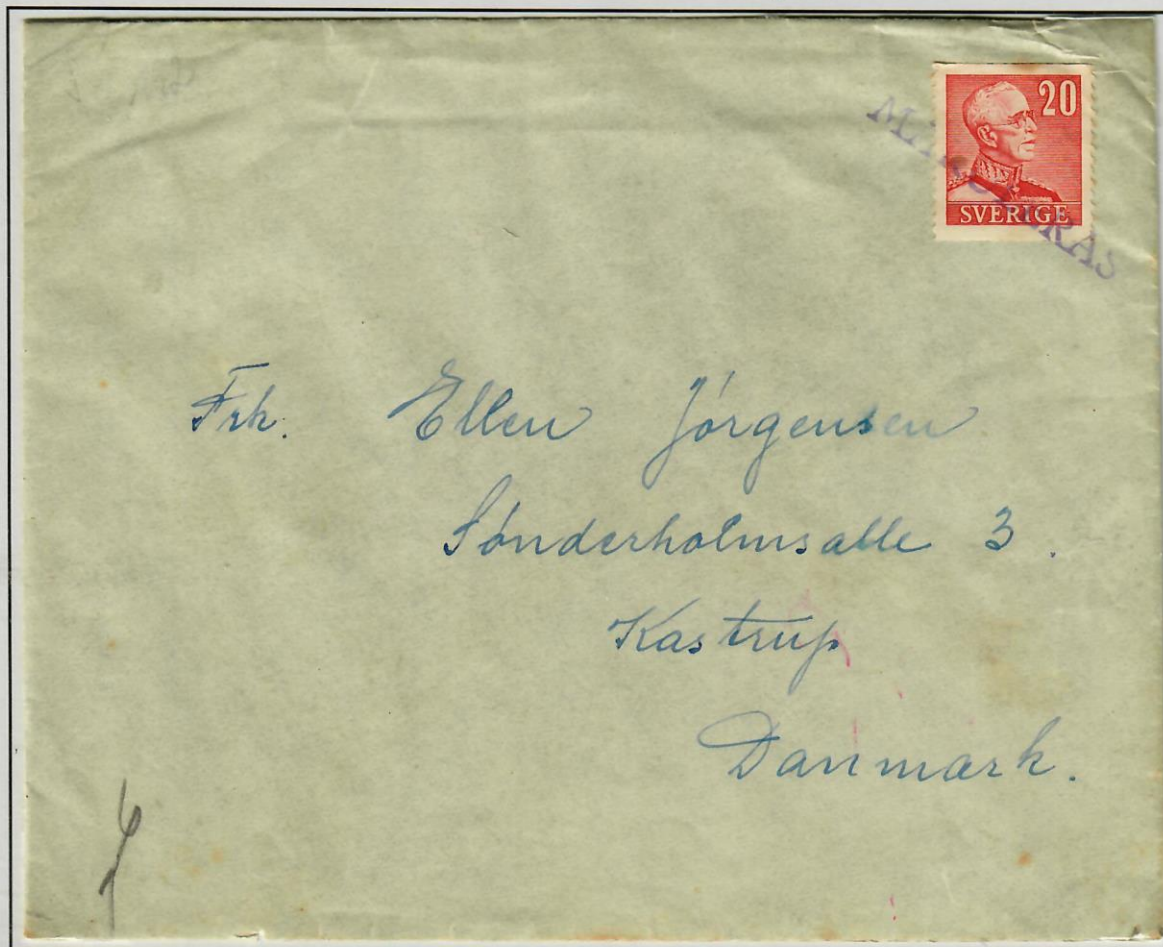 20
SVERIGE
Frk. Ellen Jørgensen
Sønderholmsalle 3.
Kastrup
Danmark.